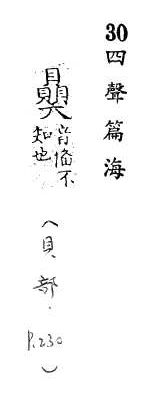 30四聲篇海
音不
知也
(貝部.P.230)